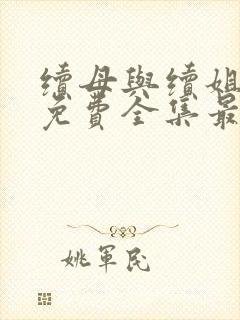 續母與續姐
免費全集最
姚軍民